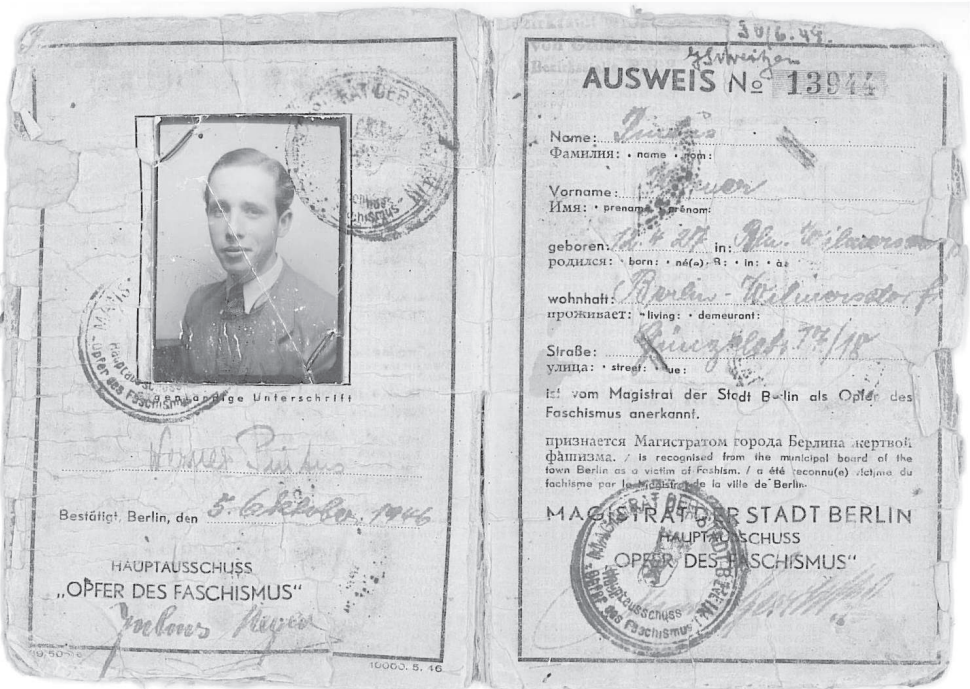 Eigenhändige Unterschrift
Werner Pintus
Bestätigt, Berlin, den 5. Oktober 1946
HAUPTAUSSCHUSS
„OPFER DES FASCHISMUS“
10000. 5. 46
30/6.49.
AUSWEIS № 13944
Name: Pintus
Фамилия: • name • nom:
Vorname: Werner
Имя: • prename • prénom:
geboren: 12.4.27 in: Bln. Wilmersdorf
родился: • born: • né(e). • in: • à:
wohnhaft: Berlin-Wilmersdorf
проживает: • living: • demeurant:
Straße: 17/18
улица: • street: • rue:
ist vom Magistrat der Stadt Berlin als Opfer des
Faschismus anerkannt.
признается Магистратом города Берлина жертвой
фашизма. / is recognised from the municipal board of the
town Berlin as a victim of Fashism. / a été reconnu(e) victime du
fachisme par le Magistrat de la ville de Berlin.
MAGISTRAT DER STADT BERLIN
HAUPTAUSSCHUSS
„OPFER DES FASCHISMUS“
MAGISTRAT DER STADT BERLIN
Hauptausschuss
Opfer des Faschismus